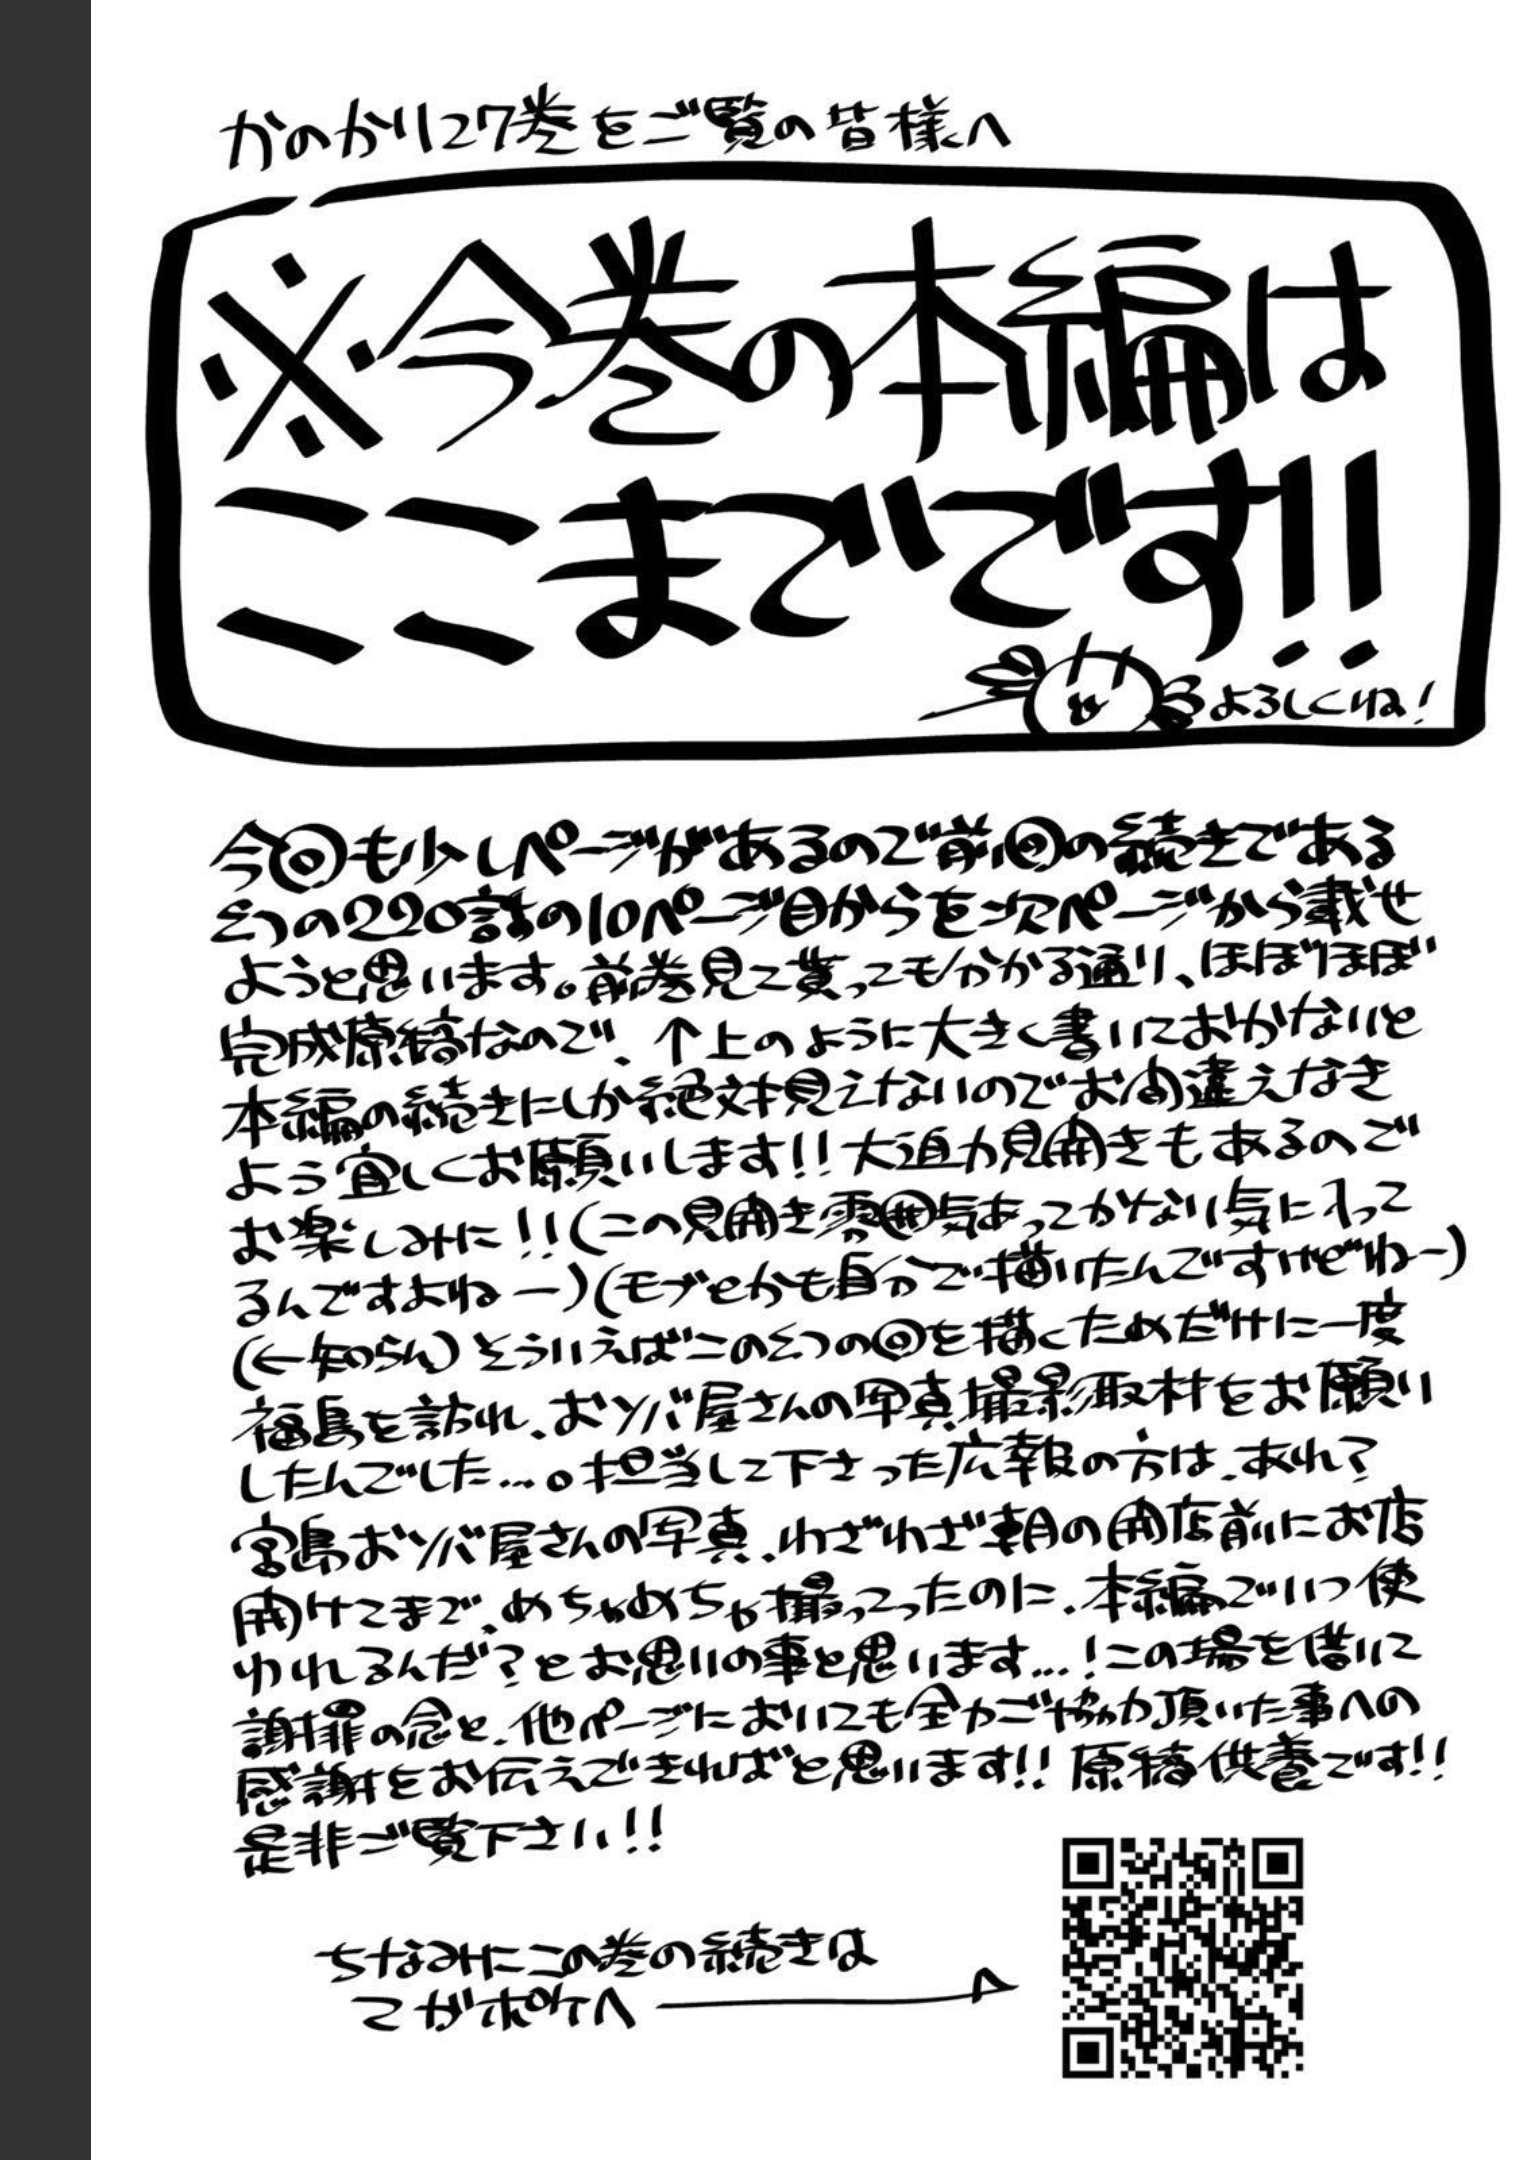 かのかり27巻をご覧の皆様へ
※今巻の本編は
ここまでです!!
よろしくね!
今回も少しページがあるので前回の続きである
もう1つの220話の10ページ目からを次ページから載せ
ようと思います。前巻見て貰ってもわかる通り、ほぼほぼ
完成原稿なので、↑上のように大きく書いておかないと
本編の続きにしか絶対見えないのでお間違えなき
よう宜しくお願いします!!大迫力見開きもあるので
お楽しみに!!(この見開き雰囲気あってかなり気に入って
るんですよねー)(モブとかも自分で描いたんですけどねー)
(←知らん)そういえばこのもう1つの回を描くためだけに一度
福島を訪れ、おソバ屋さんの写真撮影取材をお願い
したんでした…。担当して下さった広報の方は、あれ?
宮島おソバ屋さんの写真、わざわざ朝の開店前にお店
開けてまで、めちゃめちゃ撮ってったのに、本編でいつ使
われるんだ?とお思いの事と思います…!この場を借りて
謝罪の念と、他ページにおいても全力ご協力頂いた事への
感謝をお伝えできればと思います!!原稿供養です!!
是非ご覧下さい!!
ちなみにこの巻の続きは
マガポケへ